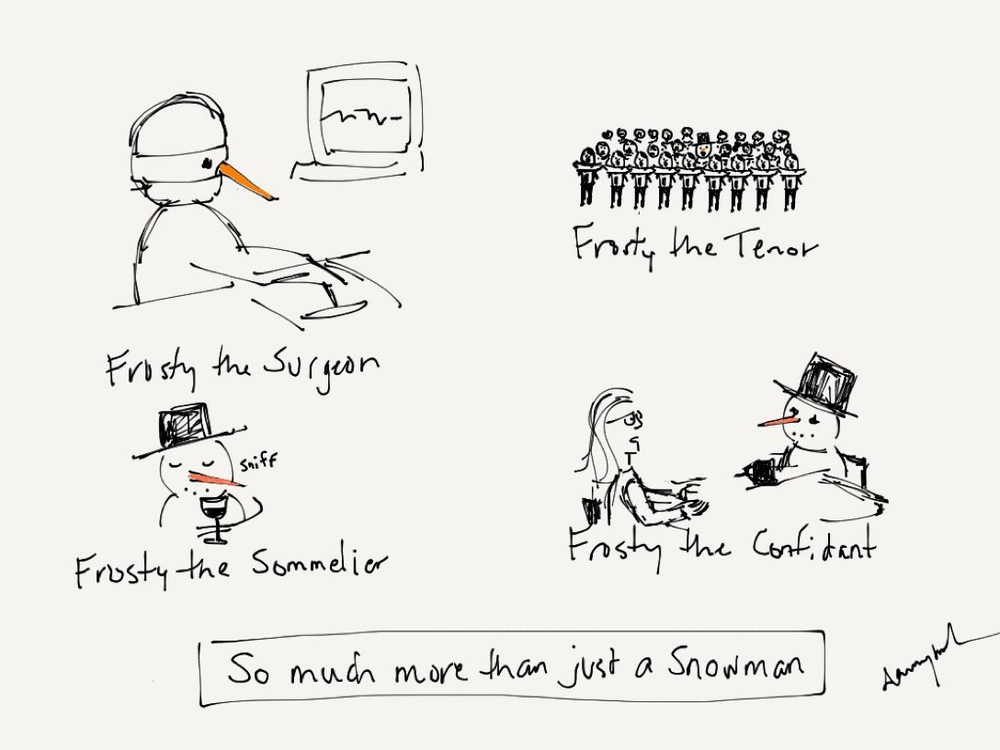 Frosty the Surgeon
Frosty the Tenor
sniff
Frosty the Sommelier
Frosty the Confidant
So much more than just a Snowman